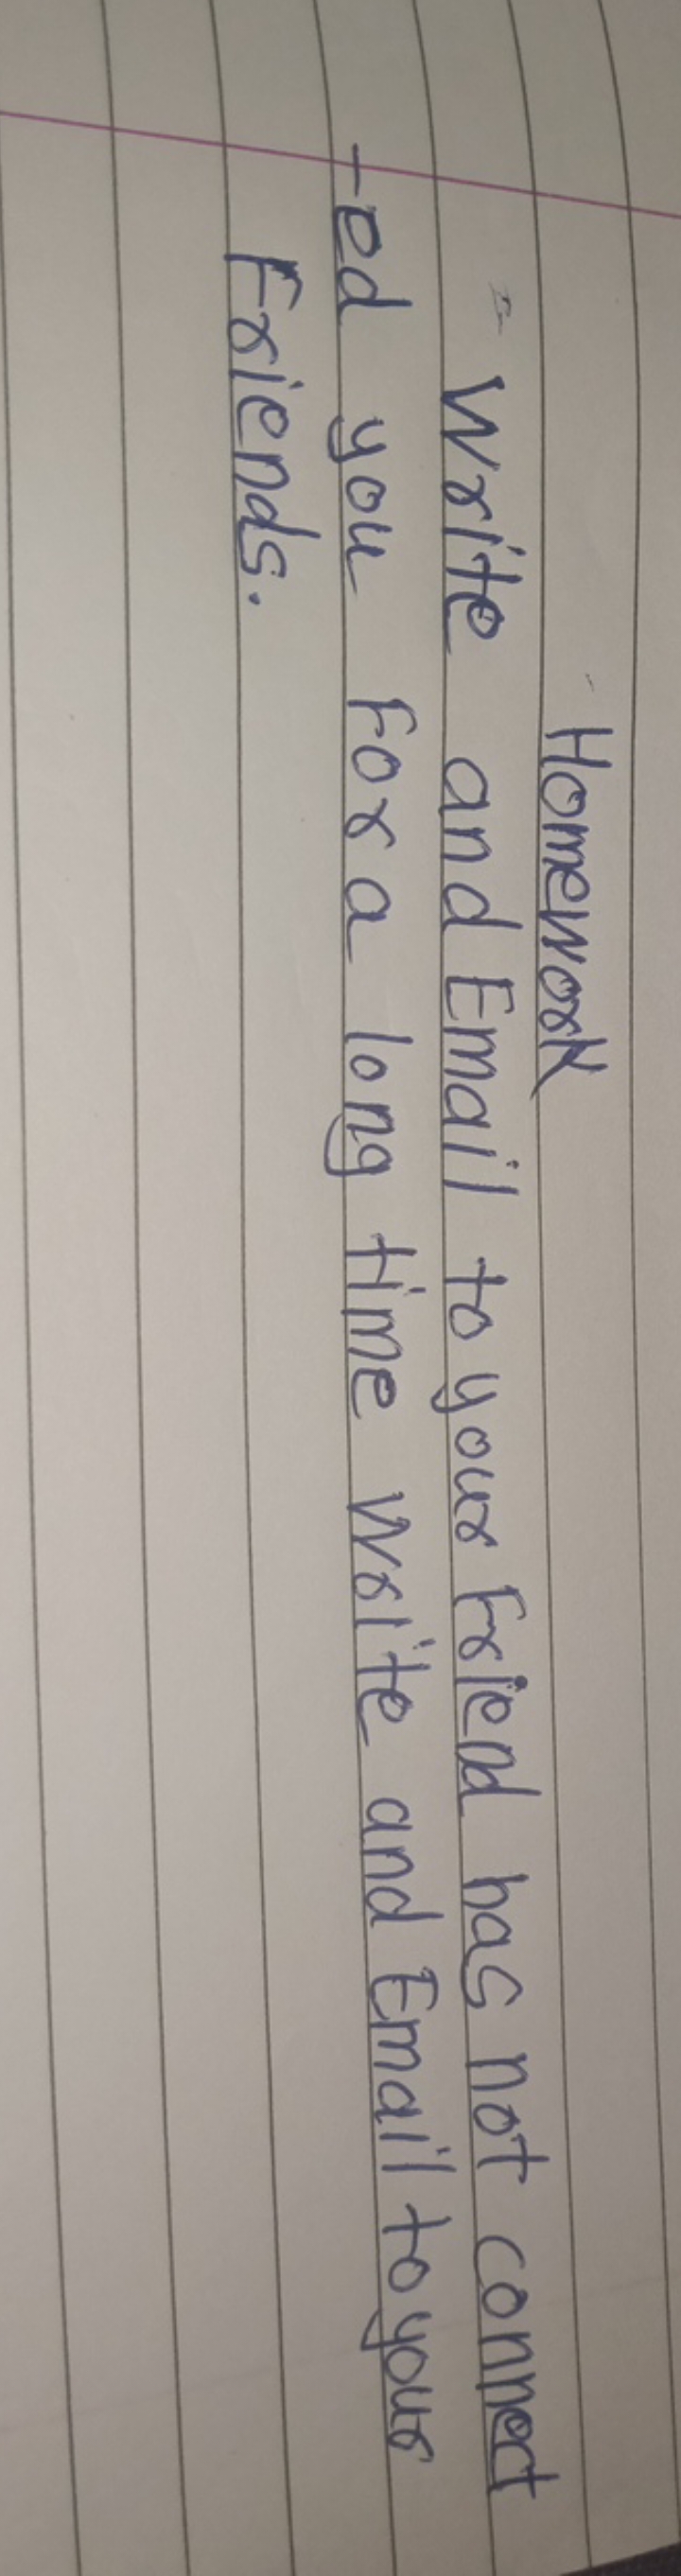 Homework
- Write and Email to your Friend has not connect
-ed you For a long time Write and Email to your
Friends.